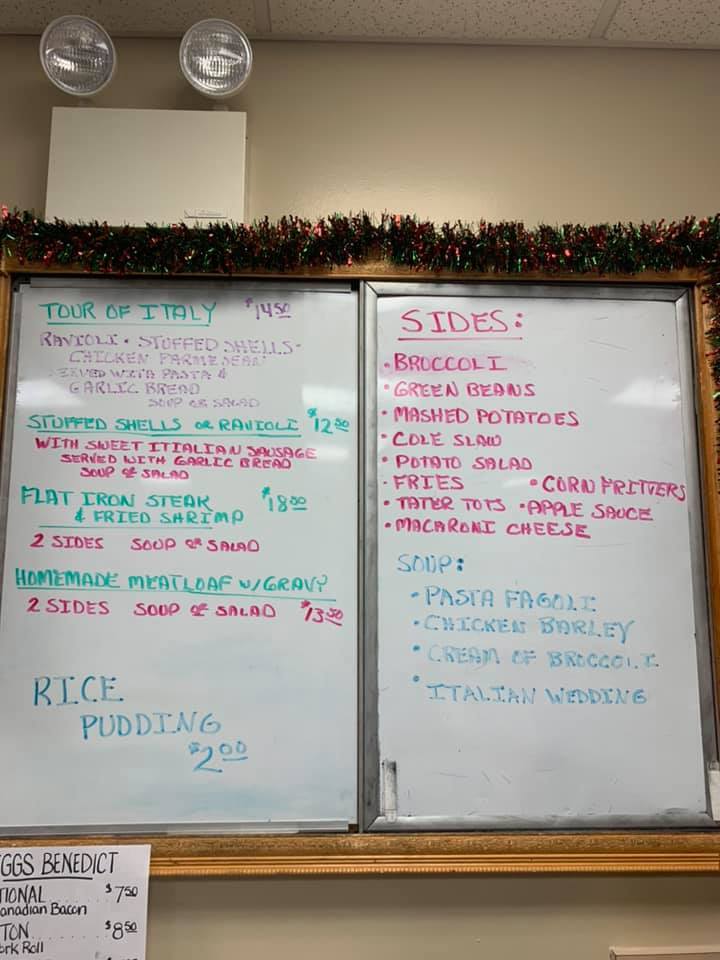 TOUR OF ITALY $14.50
RAVIOLI · STUFFED SHELLS ·
CHICKEN PARMESEAN
SERVED WITH PASTA &
GARLIC BREAD
SOUP OR SALAD
STUFFED SHELLS OR RAVIOLI $12.50
WITH SWEET ITIALIAN SAUSAGE
SERVED WITH GARLIC BREAD
SOUP OR SALAD
FLAT IRON STEAK $18.50
& FRIED SHRIMP
2 SIDES SOUP OR SALAD
HOMEMADE MEATLOAF W/GRAVY
2 SIDES SOUP OR SALAD $13.50
RICE
PUDDING
$2.00
SIDES:
· BROCCOLI
· GREEN BEANS
· MASHED POTATOES
· COLE SLAW
· POTATO SALAD
· FRIES · CORN FRITTERS
· TATER TOTS · APPLE SAUCE
· MACARONI CHEESE
SOUP:
· PASTA FAGOLI
· CHICKEN BARLEY
· CREAM OF BROCCOLI
· ITALIAN WEDDING
GGS BENEDICT
TIONAL ..... $7.50
anadian Bacon
TON ..... $8.50
ork Roll